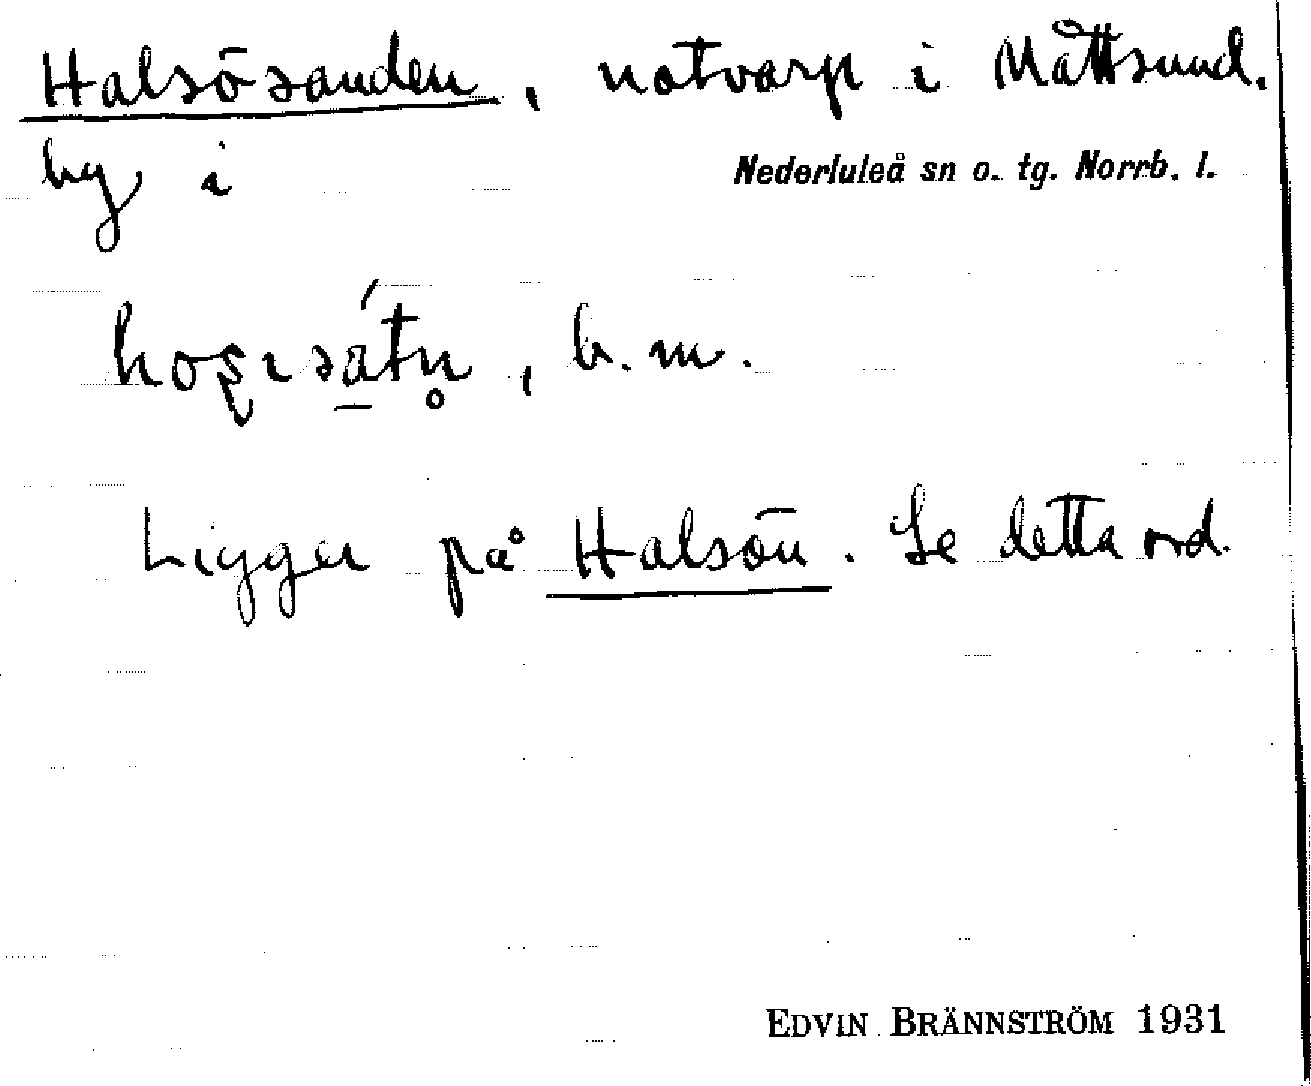 Halsösanden, notvarp i Måttsund.
by i Nederluleå sn o. tg. Norrb. l.
b. m.
Ligger på Halsön. Se detta ord.
EDVIN BRÄNNSTRÖM 1931